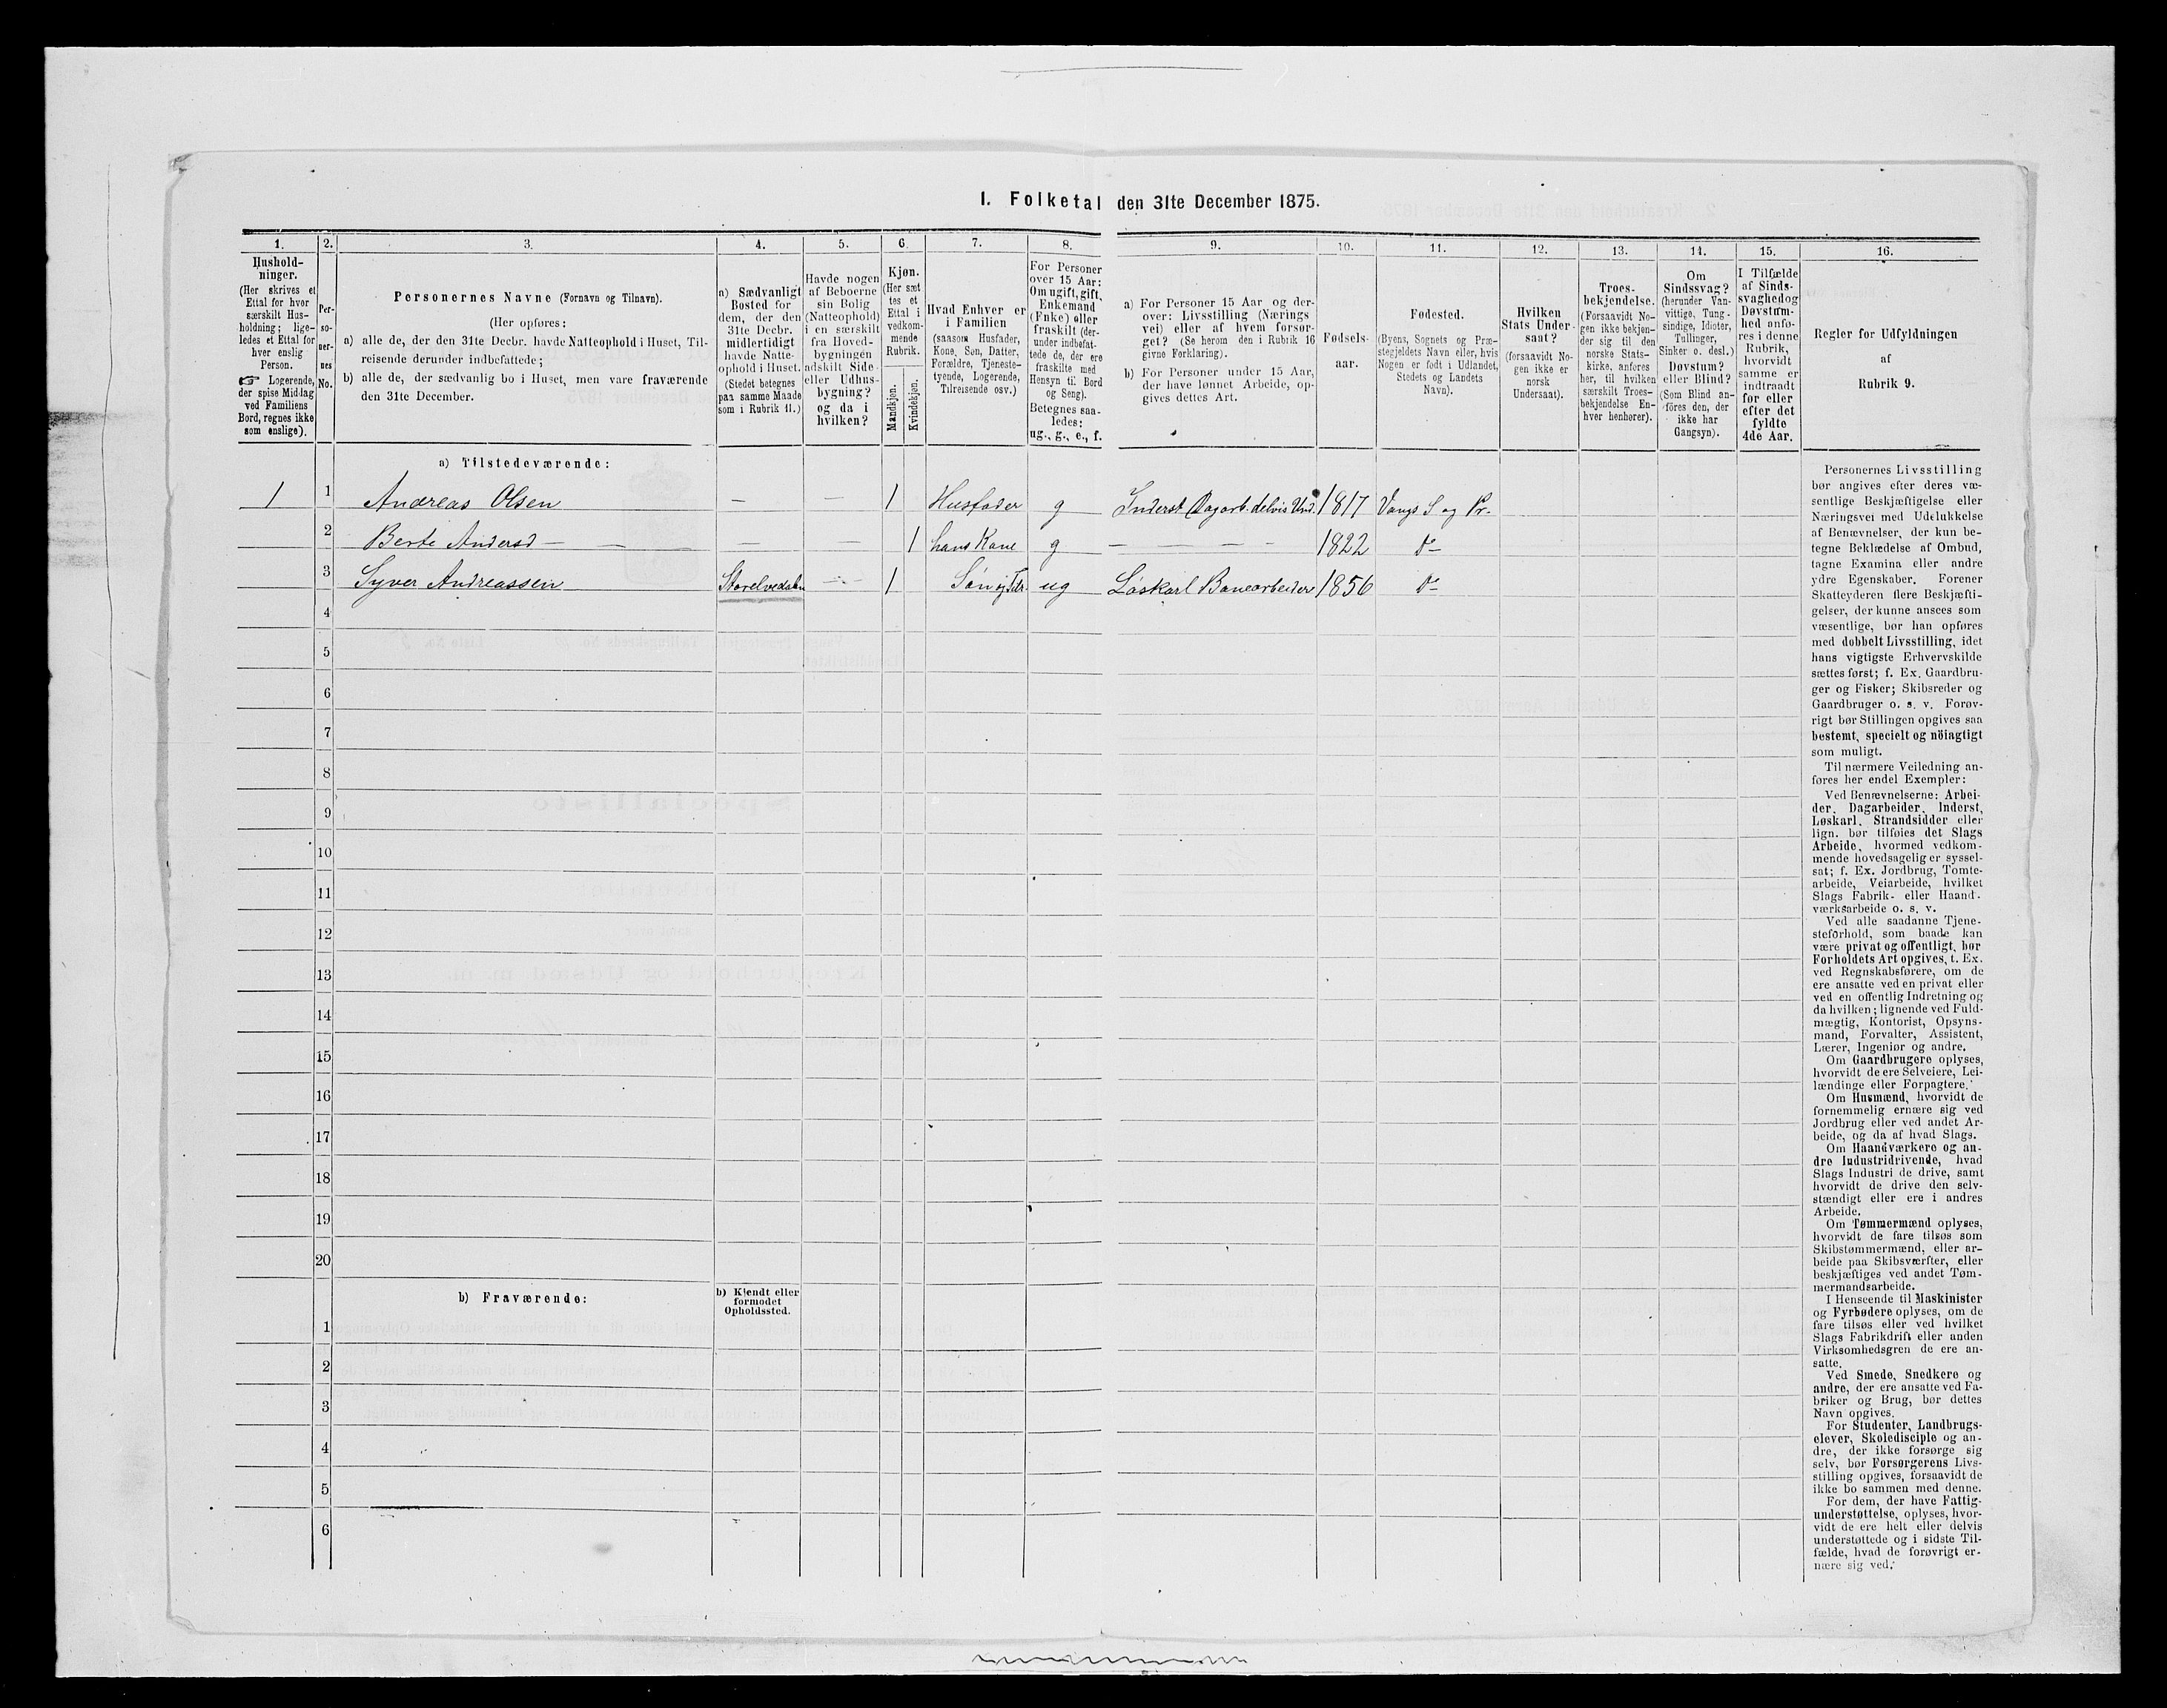 I. Folketal den 31te December 1875.
1. 2. 3. 4. 5. 6. 7. 8. 9. 10. 11. 12. 13. 14. 15. 16.
Hushold-
ninger.
(Her skrives et
Ettal for hver
særskilt Hus-
holdning; lige-
ledes et Ettal for
hver enslig
Person.
☞ Logerende,
der spise Middag
ved Familiens
Bord, regnes ikke
som enslige).
Per-
so-
ner-
nes
No.
Personernes Navne (Fornavn og Tilnavn).
(Her opføres:
a) alle de, der den 31te Decbr. havde Natteophold i Huset, Til-
reisende derunder indbefattede;
b) alle de, der sædvanlig bo i Huset, men vare fraværende
den 31te December.
a) Sædvanligt
Bosted for
dem, der den
31te Decbr.
midlertidigt
havde Natte-
ophold i Huset.
(Stedet betegnes
paa samme Maade
som i Rubrik 11.)
Havde nogen
af Beboerne
sin Bolig
(Natteophold)
i en særskilt
fra Hoved-
bygningen
adskilt Side-
eller Udhus-
bygning?
og da i
hvilken?
Kjøn.
(Her sæt
tes et
Ettal i
vedkom-
mende
Rubrik.
Mandkjøn.
Kvindekjøn.
Hvad Enhver er
i Familien
(saasom Husfader,
Kone, Søn, Datter,
Forældre, Tjeneste-
tyende, Logerende,
Tilreisende osv.)
For Personer
over 15 Aar:
Om ugift, gift,
Enkemand
(Enke) eller
fraskilt (der-
under indbefat-
tede de, der ere
fraskilte med
Hensyn til Bord
og Seng).
Betegnes saa-
ledes:
ug., g., e., f.
a) For Personer 15 Aar og der-
over: Livsstilling (Nærings
vei) eller af hvem forsør-
get? (Se herom den i Rubrik 16
givne Forklaring).
b) For Personer under 15 Aar,
der have lønnet Arbeide, op-
gives dettes Art.
Fødsels-
aar.
Fødested.
(Byens, Sognets og Præ-
stegjeldets Navn eller, hvis
Nogen er født i Udlandet,
Stedets og Landets
Navn).
Hvilken
Stats Under-
saat?
(forsaavidt No-
gen ikke er
norsk
Undersaat).
Troes-
bekjendelse.
(Forsaavidt No-
gen ikke bekjen-
der sig til den
norske Stats-
kirke, anføres
her, til hvilken
særskilt Troes-
bekjendelse En-
hver henhører).
Om
Sindssvag?
(herunder Van-
vittige, Tung-
sindige, Idioter,
Tullinger,
Sinker o. desl.)
Døvstum?
eller Blind?
(Som Blind an-
føres den, der
ikke har
Gangsyn).
I Tilfælde
af Sinds-
svaghed og
Døvstum-
hed anfø-
res i denne
Rubrik,
hvorvidt
samme er
indtraadt
før eller
efter det
fyldte
4de Aar.
Regler for Udfyldningen
af
Rubrik 9.
a) Tilstedeværende:
1 1 Andreas Olsen — — 1 Husfader g Inderst Dagarb. delvis Und. 1817 Vangs S og Pr.
2 Berte Andersd — — — — — 1 hans Kone g — — — — 1822 do
3 Syver Andreassen Storelvedalen — 1 Søn ug Løskarl Banearbeider 1856 do
4
5
6
7
8
9
10
11
12
13
14
15
16
17
18
19
20
b) Fraværende:
b) Kjendt eller
formodet
Opholdssted.
1
2
3
4
5
6
Personernes Livsstilling
bør angives efter deres væ-
sentlige Beskjæftigelse eller
Næringsvei med Udelukkelse
af Benævnelser, der kun be-
tegne Beklædelse af Ombud,
tagne Examina eller andre
ydre Egenskaber. Forener
Skatteyderen flere Beskjæfti-
gelser, der kunne ansees som
væsentlige, bør han opføres
med dobbelt Livsstilling, idet
hans vigtigste Erhvervskilde
sættes først; f. Ex. Gaardbru-
ger og Fisker; Skibsreder og
Gaardbruger o. s. v. Forøv-
rigt bør Stillingen opgives saa
bestemt, specielt og nöiagtigt
som muligt.
Til nærmere Veiledning an-
føres her endel Exempler:
Ved Benævnelserne: Arbei-
der, Dagarbeider, Inderst,
Løskarl, Strandsidder eller
lign. bør tilføies det Slags
Arbeide, hvormed vedkom-
mende hovedsagelig er syssel-
sat; f. Ex. Jordbrug, Tomte-
arbeide, Veiarbeide, hvilket
Slags Fabrik- eller Haand-
værksarbeide o. s. v.
Ved alle saadanne Tjene-
steforhold, som baade kan
være privat og offentligt, bør
Forholdets Art opgives, t. Ex.
ved Regnskabsførere, om de
ere ansatte ved en privat eller
ved en offentlig Indretning og
da hvilken; lignende ved Fuld-
mægtig, Kontorist, Opsyns-
mand, Forvalter, Assistent,
Lærer, Ingeniør og andre.
Om Gaardbrugere oplyses,
hvorvidt de ere Selveiere, Lei-
lændinge eller Forpagtere.
Om Husmænd, hvorvidt de
fornemmelig ernære sig ved
Jordbrug eller ved andet Ar-
beide, og da af hvad Slags.
Om Haandværkere og an-
dre Industridrivende, hvad
Slags Industri de drive, samt
hvorvidt de drive den selv-
stændigt eller ere i andres
Arbeide.
Om Tømmermænd oplyses,
hvorvidt de fare tilsøs som
Skibstømmermænd, eller ar-
beide paa Skibsværfter, eller
beskjæftiges ved andet Tøm-
mermandsarbeide.
I Henseende til Maskinister
og Fyrbødere oplyses, om de
fare tilsøs eller ved hvilket
Slags Fabrikdrift eller anden
Virksomhedsgren de ere an-
satte.
Ved Smede, Snedkere og
andre, der ere ansatte ved Fa-
briker og Brug, bør dettes
Navn opgives.
For Studenter, Landbrugs-
elever, Skoledisciple og an-
dre, der ikke forsørge sig
selv, bør Forsørgerens Livs-
stilling opgives, forsaavidt de
ikke bo sammen med denne.
For dem, der have Fattig-
understøttelse, oplyses, hvor-
vidt de ere helt eller delvis
understøttede og i sidste Til-
fælde, hvad de forøvrigt er-
nære sig ved.